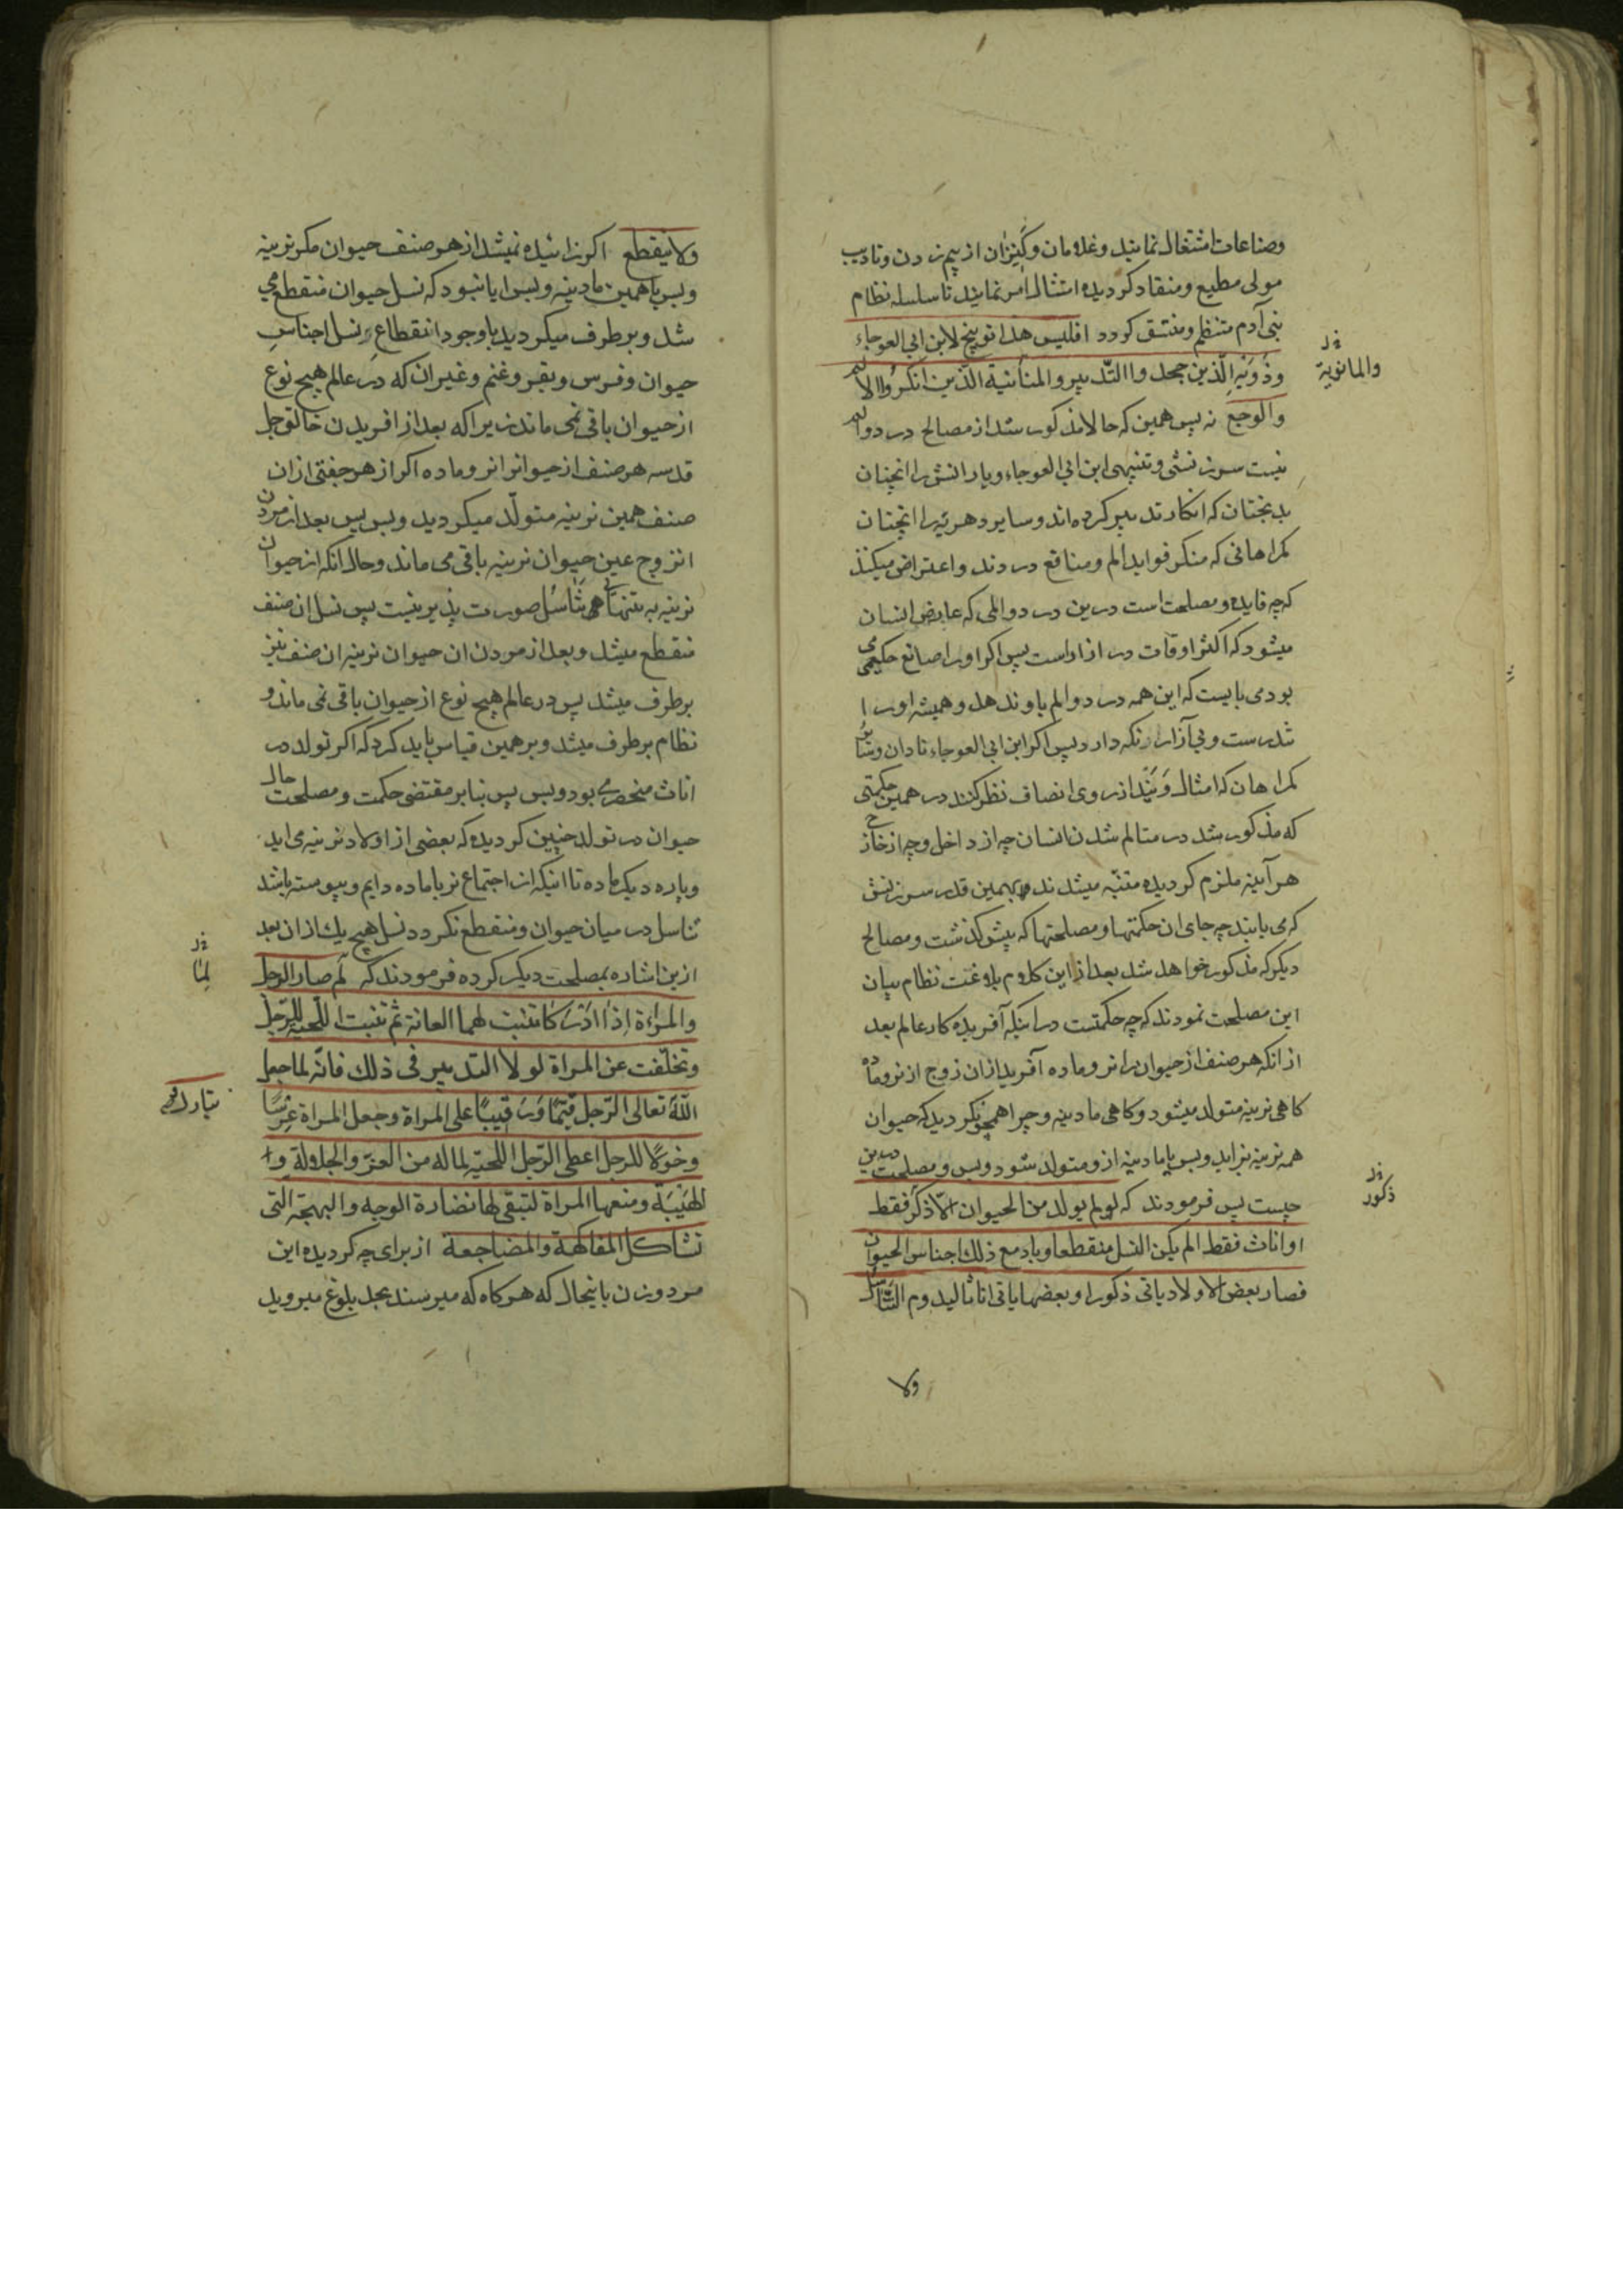 وصناعات اشتغال نمایند وغلامان وکنیزان از بیم زدن وتادیب
مولی مطیع ومنقاد کردیده امتثال امر نمایند تا سلسله نظام
بنی آدم منتظم ومنتسق کردد افلیس هذا توبیخ لابن ابی العوجاء
وذویه الذین جحدوا التدبیر والمنانیة الذین انکروا الالم
نر والمانویة
والوجع نه پس همین که حالا مذکور شد از مصالح در دو الم
نیست سرزنشی وتنبیهی ابن ابی العوجاء ویارانش را انچنان
بدبختان که انکار تدبیر کرده اند وسایر دهریه را انچنان
کمراهانی که منکر فواید الم ومنافع دردند واعتراض میکنند
که چه فایده ومصلحت است درین درد والمی که عارض انسان
میشود که اکثر اوقات در ازار است پس اکر او را صانع حکیمی
بودمی بایست که این همه درد والم باو ندهد وهمیشه او را
تندرست وبی آزار نکه دارد پس اکر ابن ابی العوجاء نادان و
کمراهان که امثال ویند از روی انصاف نظر کنند در همین حکمتی
که مذکور شد در متالم شدن انسان چه از داخل وچه از خارج
هر آینه ملزم کردیده متنبه میشدند وبهمین قدر سرزنش
که می یابند چه جای ان حکمتها ومصلحتها که پیش کذشت ومصالح
دیکر که مذکور خواهد شد بعد از این کلام بلاغت نظام بیان
این مصلحت نمودند که چه حکمتست در اینکه آفریده کار عالم بعد
از انکه هر صنف از حیوان را نر وماده آفرید ازان زوج از نر وماده
کاهی نرینه متولد میشود وکاهی مادینه وچرا همچو نکردید که حیوان
همه نرینه بزاید وبس یا مادینه ازو متولد شود وبس ومصلحت درین
چیست پس فرمودند که لو لم یولد من الحیوان الا ذکر فقط
نر ذکور
او اناث فقط الم یکن النسل منقطعا وباد مع ذلک اجناس الحیوان
فصار بعض الاولاد یاتی ذکورا وبعضها یاتی اناثا لیدوم التناسل
ولا
ولا ینقطع اکر زائیده نمیشد از هر صنف حیوان مکر نرینه
وبس یا همین مادینه وبس ایا نبود که نسل حیوان منقطع می
شد وبرطرف میکردید با وجود انقطاع نسل اجناس
حیوان وفرس وبقر وغنم وغیران که در عالم هیچ نوع
از حیوان باقی نمی ماند زیرا که بعد از افریدن خالق جل
قدسه هر صنف از حیوانرا نر وماده اکر از هر جفتی ازان
صنف همین نرینه متولد میکردید وبس پس بعد از مردن
انزوج عین حیوان نرینه باقی می ماند وحال انکه از حیوان
نرینه به تنهائی تناسل صورت پذیر نیست پس نسل ان صنف
منقطع میشد وبعد از مردن ان حیوان نرینه ان صنف نیز
برطرف میشد پس در عالم هیچ نوع از حیوان باقی نمی ماند و
نظام برطرف میشد وبر همین قیاس باید کرد که اکر تولد در
اناث منحصر می بود وبس پس بنابر مقتضی حکمت ومصلحت حال
حیوان در تولد چنین کردیده که بعضی از اولاد نرینه می اید
وپاره دیکر ماده تا اینکه از اجتماع نر با ماده دایم وپیوسته باشد
تناسل در میان حیوان ومنقطع نکردد نسل هیچ یک ازان بعد
ازین اشاره بمصلحت دیکر کرده فرمودند که لم صار الرجل
نر لما
والمراءة اذا ادرکا تنبت لهما العانة ثم تنبت اللحیة للرجل
وتخلفت عن المراة لولا التدبیر فی ذلک فانه لما جعل
الله تعالی الرجل قیما ورقیبا علی المراة وجعل المراة عرسا
تبارک و
وخولا للرجل اعطی الرجل اللحیة لما له من العز والجلالة وا
لهیبة ومنعها المراة لتبقی لها نضارة الوجه والبهجة التی
تشاکل المفاکهة والمضاجعة از برای چه کردیده این
مرد وزن باینحال که هرکاه که میرسند بحد بلوغ میروید